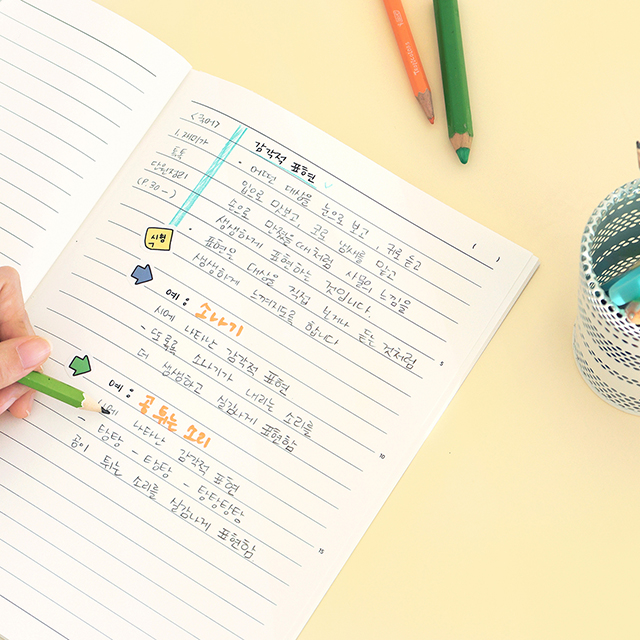 <국어>
1. 재미가
톡톡
단원정리
(P.30~)
감각적 표현
· 어떤 대상을 눈으로 보고, 귀로 듣고
입으로 맛보고, 코로 냄새를 맡고
손으로 만졌을 때처럼 사물의 느낌을
생생하게 표현하는 것입니다.
· 표현은 대상을 직접 보거나 듣는 것처럼
생생하게 느껴지도록 합니다
시험
예: 소나기
시에 나타난 감각적 표현
- 또록또록 소나기가 내리는 소리를
더 생생하고 실감나게 표현함
예: 공 튀는 소리
시에 나타난 감각적 표현
- 탕탕 - 탕탕 - 탕탕탕탕
공이 튀는 소리를 실감나게 표현함
5
10
15